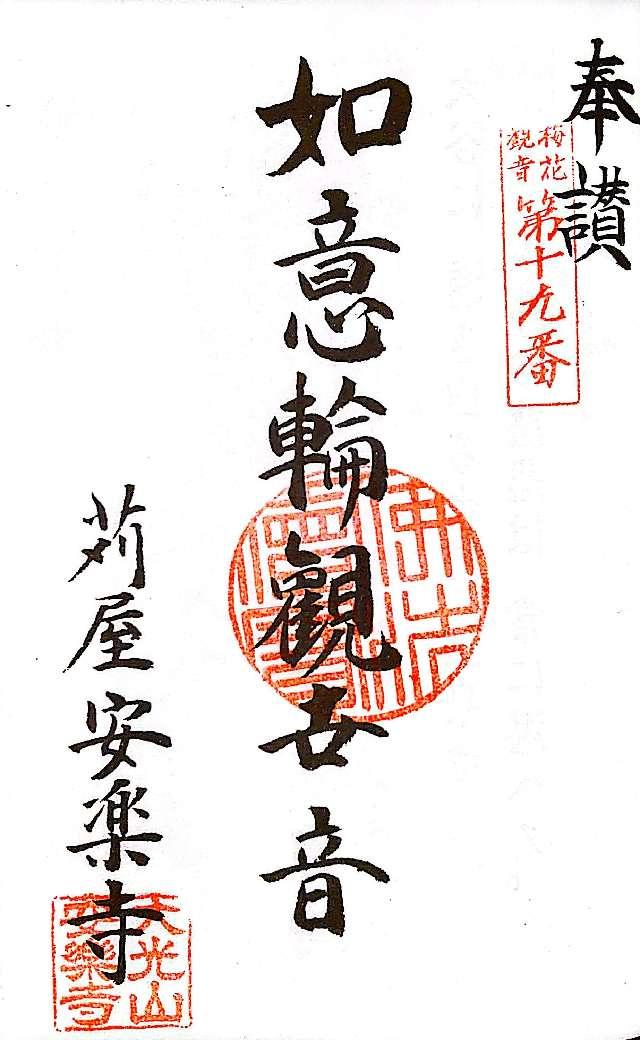 奉讃
梅花
観音
第十九番
如意輪觀世音
苅屋安楽寺
天光山
安樂寺